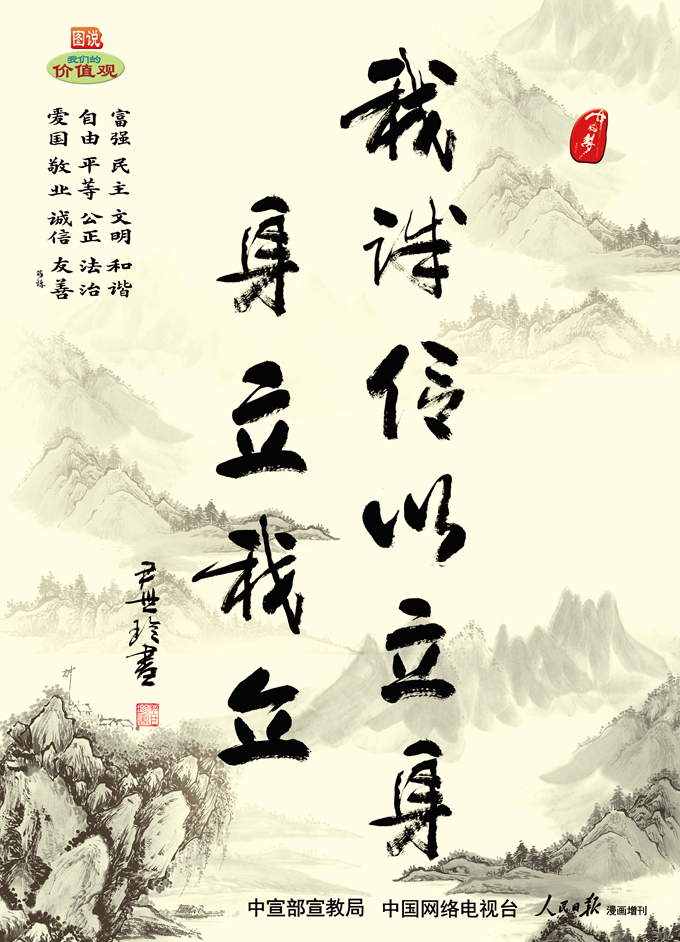 图说
我们的
价值观
富强 民主 文明 和谐
自由 平等 公正 法治
爱国 敬业 诚信 友善
中国梦
我诚信以立身
身立我立
尹世玲書
中宣部宣教局 中国网络电视台 人民日报 漫画增刊